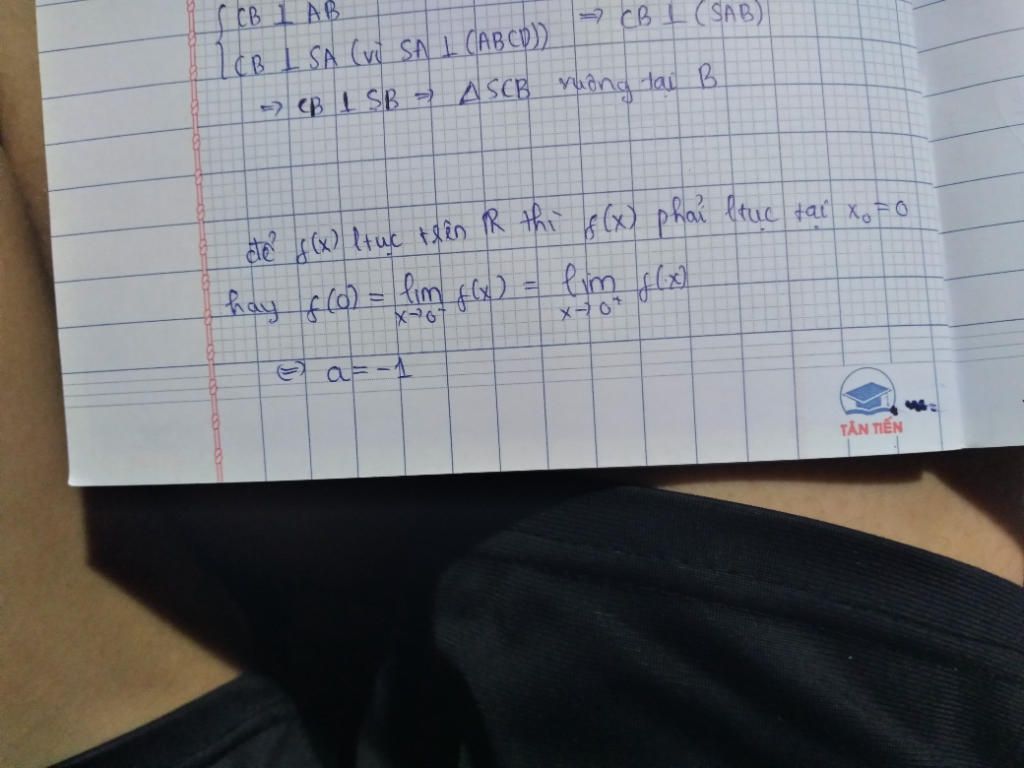 { CB ⊥ AB
CB ⊥ SA (vì SA ⊥ (ABCD)) ⇒ CB ⊥ (SAB)
⇒ CB ⊥ SB ⇒ ΔSCB vuông tại B
để f(x) ltục trên R thì f(x) phải ltục tại x₀ = 0
hay f(0) = lim f(x) = lim f(x)
x→0⁻ x→0⁺
⇔ a = -1
TÂN TIẾN